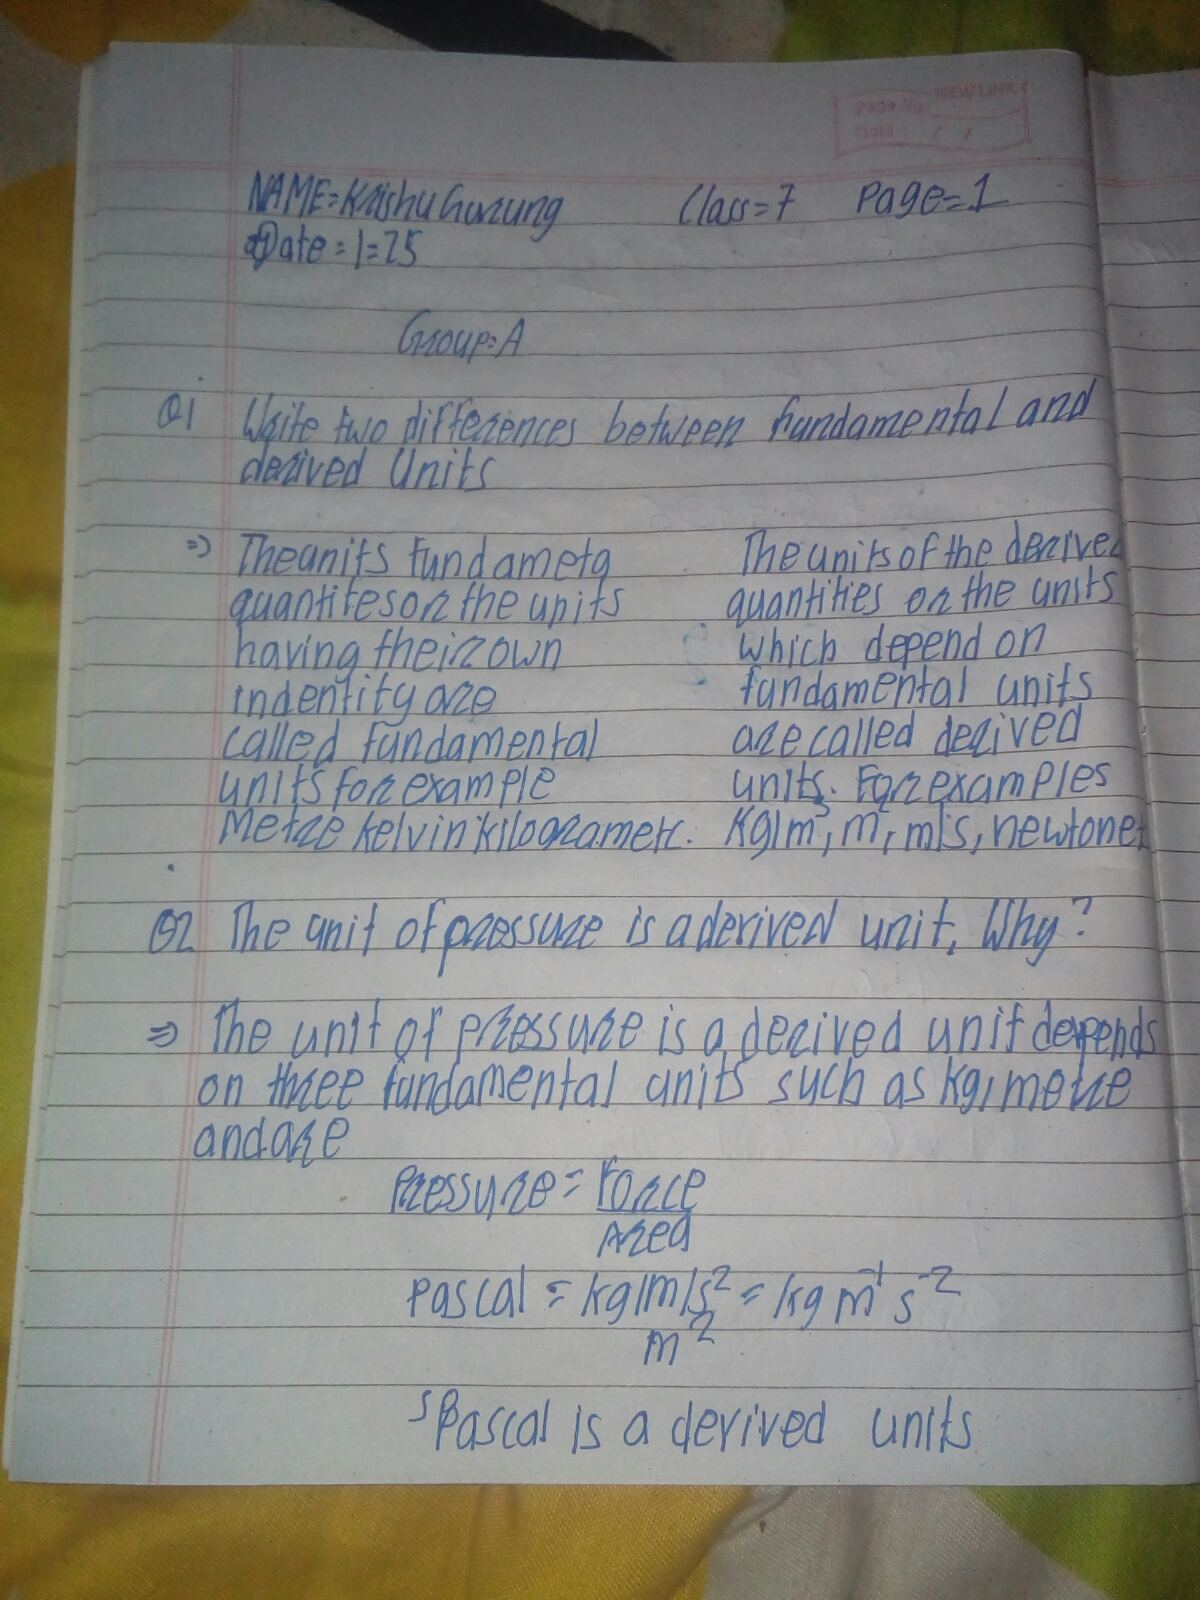 NEW LINK
Page No.
Date : / /
NAME=Krishu Gurung Class=7 Page=1
Date=1=25
Group=A
Q1 Write two differences between fundamental and
derived Units
=> The units fundameta
quantites or the units
having their own
indentity are
called fundamental
units for example
Metre kelvin kilogram etc.
The units of the derived
quantities or the units
which depend on
fundamental units
are called derived
units. For examples
kg/m³, m, m/s, newton et
Q2 The unit of pressure is a derived unit. Why?
=> The unit of pressure is a derived unit depends
on three fundamental units such as kg, metre
and are
Pressure = Force
Area
Pascal = kg/m/s² = kg m⁻¹ s⁻²
m²
s Pascal is a derived units